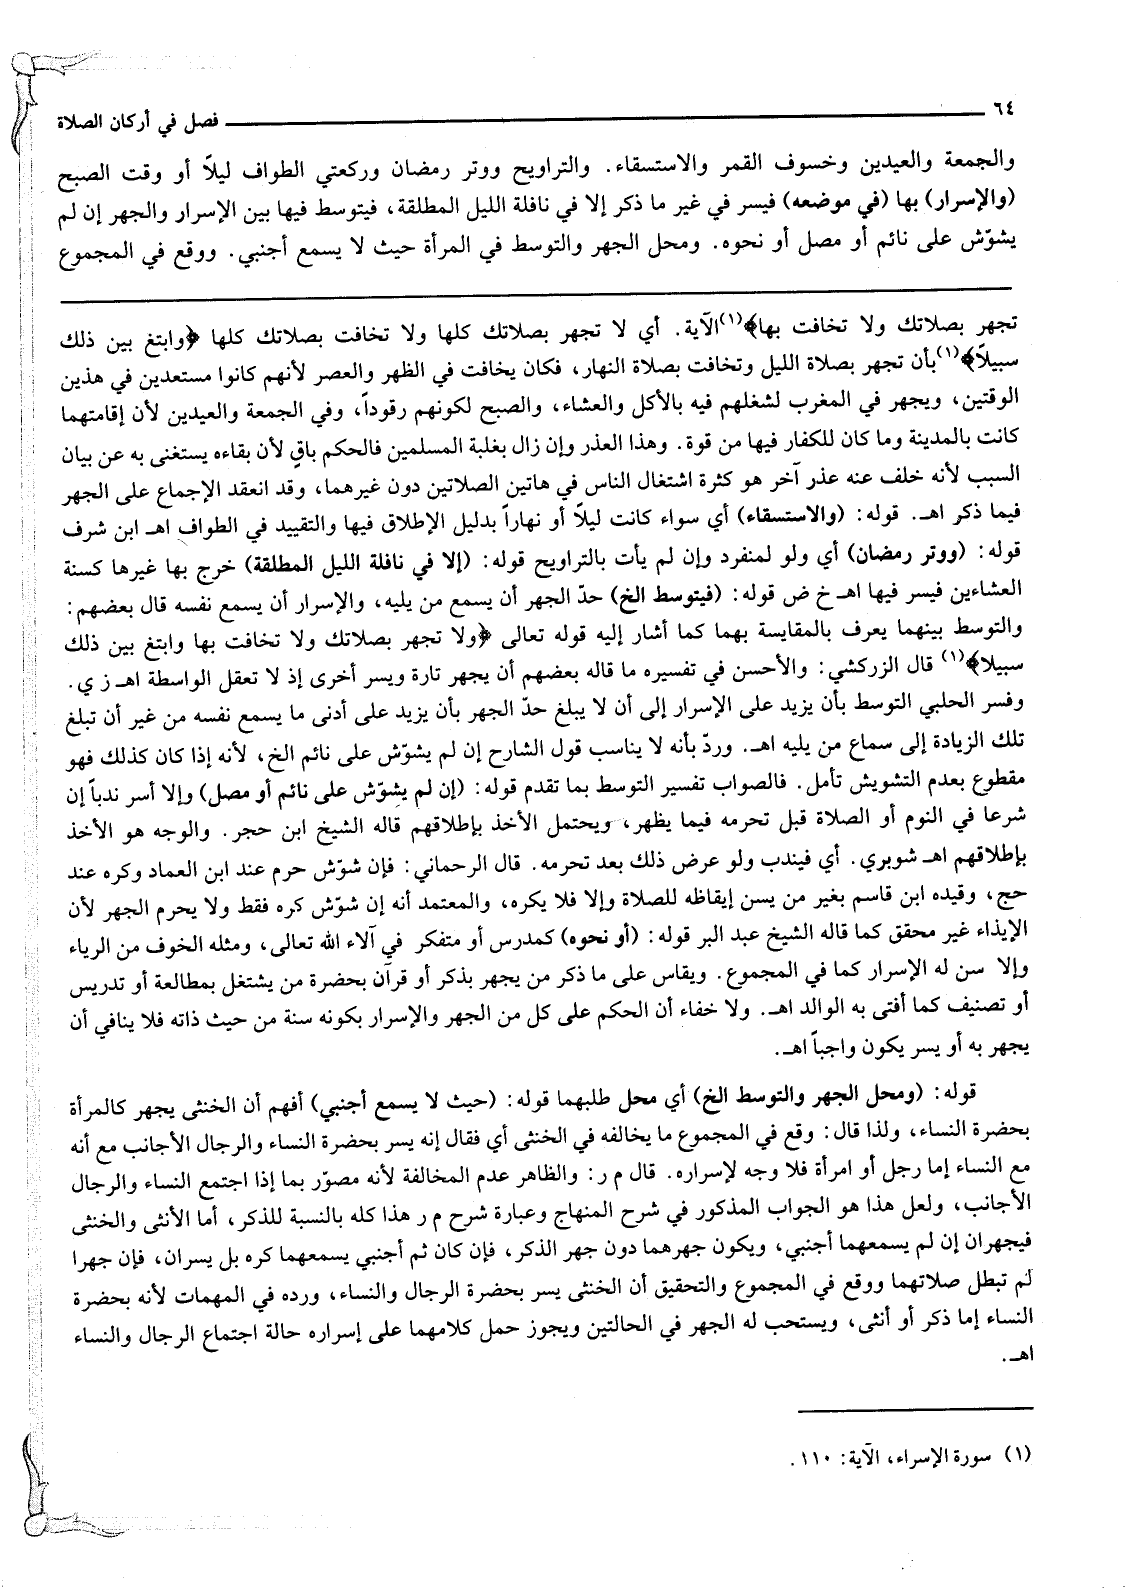 ٦٤ فصل في أركان الصلاة
والجمعة والعيدين وخسوف القمر والاستسقاء. والتراويح ووتر رمضان وركعتي الطواف ليلاً أو وقت الصبح
(والإسرار) بها (في موضعه) فيسر في غير ما ذكر إلا في نافلة الليل المطلقة، فيتوسط فيها بين الإسرار والجهر إن لم
يشوّش على نائم أو مصل أو نحوه. ومحل الجهر والتوسط في المرأة حيث لا يسمع أجنبي. ووقع في المجموع
تجهر بصلاتك ولا تخافت بها﴾(١)الآية. أي لا تجهر بصلاتك كلها ولا تخافت بصلاتك كلها ﴿وابتغ بين ذلك
سبيلاً﴾(١)بأن تجهر بصلاة الليل وتخافت بصلاة النهار، فكان يخافت في الظهر والعصر لأنهم كانوا مستعدين في هذين
الوقتين، ويجهر في المغرب لشغلهم فيه بالأكل والعشاء، والصبح لكونهم رقوداً، وفي الجمعة والعيدين لأن إقامتهما
كانت بالمدينة وما كان للكفار فيها من قوة. وهذا العذر وإن زال بغلبة المسلمين فالحكم باقٍ لأن بقاءه يستغنى به عن بيان
السبب لأنه خلف عنه عذر آخر هو كثرة اشتغال الناس في هاتين الصلاتين دون غيرهما، وقد انعقد الإجماع على الجهر
فيما ذكر اهـ. قوله: (والاستسقاء) أي سواء كانت ليلاً أو نهاراً بدليل الإطلاق فيها والتقييد في الطواف اهـ ابن شرف
قوله: (ووتر رمضان) أي ولو لمنفرد وإن لم يأت بالتراويح قوله: (إلا في نافلة الليل المطلقة) خرج بها غيرها كسنة
العشاءين فيسر فيها اهـ خ ض قوله: (فيتوسط الخ) حدّ الجهر أن يسمع من يليه، والإسرار أن يسمع نفسه قال بعضهم:
والتوسط بينهما يعرف بالمقايسة بهما كما أشار إليه قوله تعالى ﴿ولا تجهر بصلاتك ولا تخافت بها وابتغ بين ذلك
سبيلا﴾(١) قال الزركشي: والأحسن في تفسيره ما قاله بعضهم أن يجهر تارة ويسر أخرى إذ لا تعقل الواسطة اهـ ز ي.
وفسر الحلبي التوسط بأن يزيد على الإسرار إلى أن لا يبلغ حدّ الجهر بأن يزيد على أدنى ما يسمع نفسه من غير أن تبلغ
تلك الزيادة إلى سماع من يليه اهـ. وردّ بأنه لا يناسب قول الشارح إن لم يشوّش على نائم الخ، لأنه إذا كان كذلك فهو
مقطوع بعدم التشويش تأمل. فالصواب تفسير التوسط بما تقدم قوله: (إن لم يشوّش على نائم أو مصل) وإلا أسر ندباً إن
شرعا في النوم أو الصلاة قبل تحرمه فيما يظهر، ويحتمل الأخذ بإطلاقهم قاله الشيخ ابن حجر. والوجه هو الأخذ
بإطلاقهم اهـ شوبري. أي فيندب ولو عرض ذلك بعد تحرمه. قال الرحماني: فإن شوّش حرم عند ابن العماد وكره عند
حج، وقيده ابن قاسم بغير من يسن إيقاظه للصلاة وإلا فلا يكره، والمعتمد أنه إن شوّش كره فقط ولا يحرم الجهر لأن
الإيذاء غير محقق كما قاله الشيخ عبد البر قوله: (أو نحوه) كمدرس أو متفكر في آلاء الله تعالى، ومثله الخوف من الرياء
وإلا سن له الإسرار كما في المجموع. ويقاس على ما ذكر من يجهر بذكر أو قرآن بحضرة من يشتغل بمطالعة أو تدريس
أو تصنيف كما أفتى به الوالد اهـ. ولا خفاء أن الحكم على كل من الجهر والإسرار بكونه سنة من حيث ذاته فلا ينافي أن
يجهر به أو يسر يكون واجباً اهـ.
قوله: (ومحل الجهر والتوسط الخ) أي محل طلبهما قوله: (حيث لا يسمع أجنبي) أفهم أن الخنثى يجهر كالمرأة
بحضرة النساء، ولذا قال: وقع في المجموع ما يخالفه في الخنثى أي فقال إنه يسر بحضرة النساء والرجال الأجانب مع أنه
مع النساء إما رجل أو امرأة فلا وجه لإسراره. قال م ر: والظاهر عدم المخالفة لأنه مصوّر بما إذا اجتمع النساء والرجال
الأجانب، ولعل هذا هو الجواب المذكور في شرح المنهاج وعبارة شرح م ر هذا كله بالنسبة للذكر، أما الأنثى والخنثى
فيجهران إن لم يسمعهما أجنبي، ويكون جهرهما دون جهر الذكر، فإن كان ثم أجنبي يسمعهما كره بل يسران، فإن جهرا
لم تبطل صلاتهما ووقع في المجموع والتحقيق أن الخنثى يسر بحضرة الرجال والنساء، ورده في المهمات لأنه بحضرة
النساء إما ذكر أو أنثى، ويستحب له الجهر في الحالتين ويجوز حمل كلامهما على إسراره حالة اجتماع الرجال والنساء
اهـ.
(١) سورة الإسراء، الآية: ١١٠.